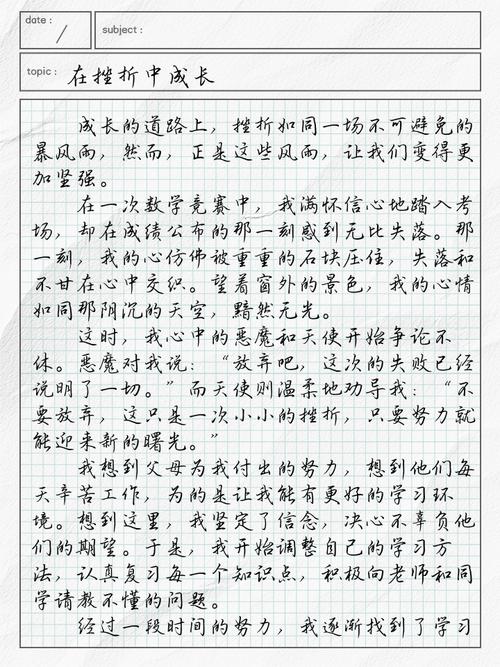 date :
/
subject :
topic : 在挫折中成长
成长的道路上，挫折如同一场不可避免的
暴风雨，然而，正是这些风雨，让我们变得更
加坚强。
在一次数学竞赛中，我满怀信心地踏入考
场，却在成绩公布的那一刻感到无比失落。那
一刻，我的心仿佛被重重的石块压住，失落和
不甘在心中交织。望着窗外的景色，我的心情
如同那阴沉的天空，黯然无光。
这时，我心中的恶魔和天使开始争论不
休。恶魔对我说：“放弃吧，这次的失败已经
说明了一切。”而天使则温柔地劝导我：“不
要放弃，这只是一次小小的挫折，只要努力就
能迎来新的曙光。”
我想到父母为我付出的努力，想到他们每
天辛苦工作，为的是让我能有更好的学习环
境。想到这里，我坚定了信念，决心不辜负他
们的期望。于是，我开始调整自己的学习方
法，认真复习每一个知识点，积极向老师和同
学请教不懂的问题。
经过一段时间的努力，我逐渐找到了学习